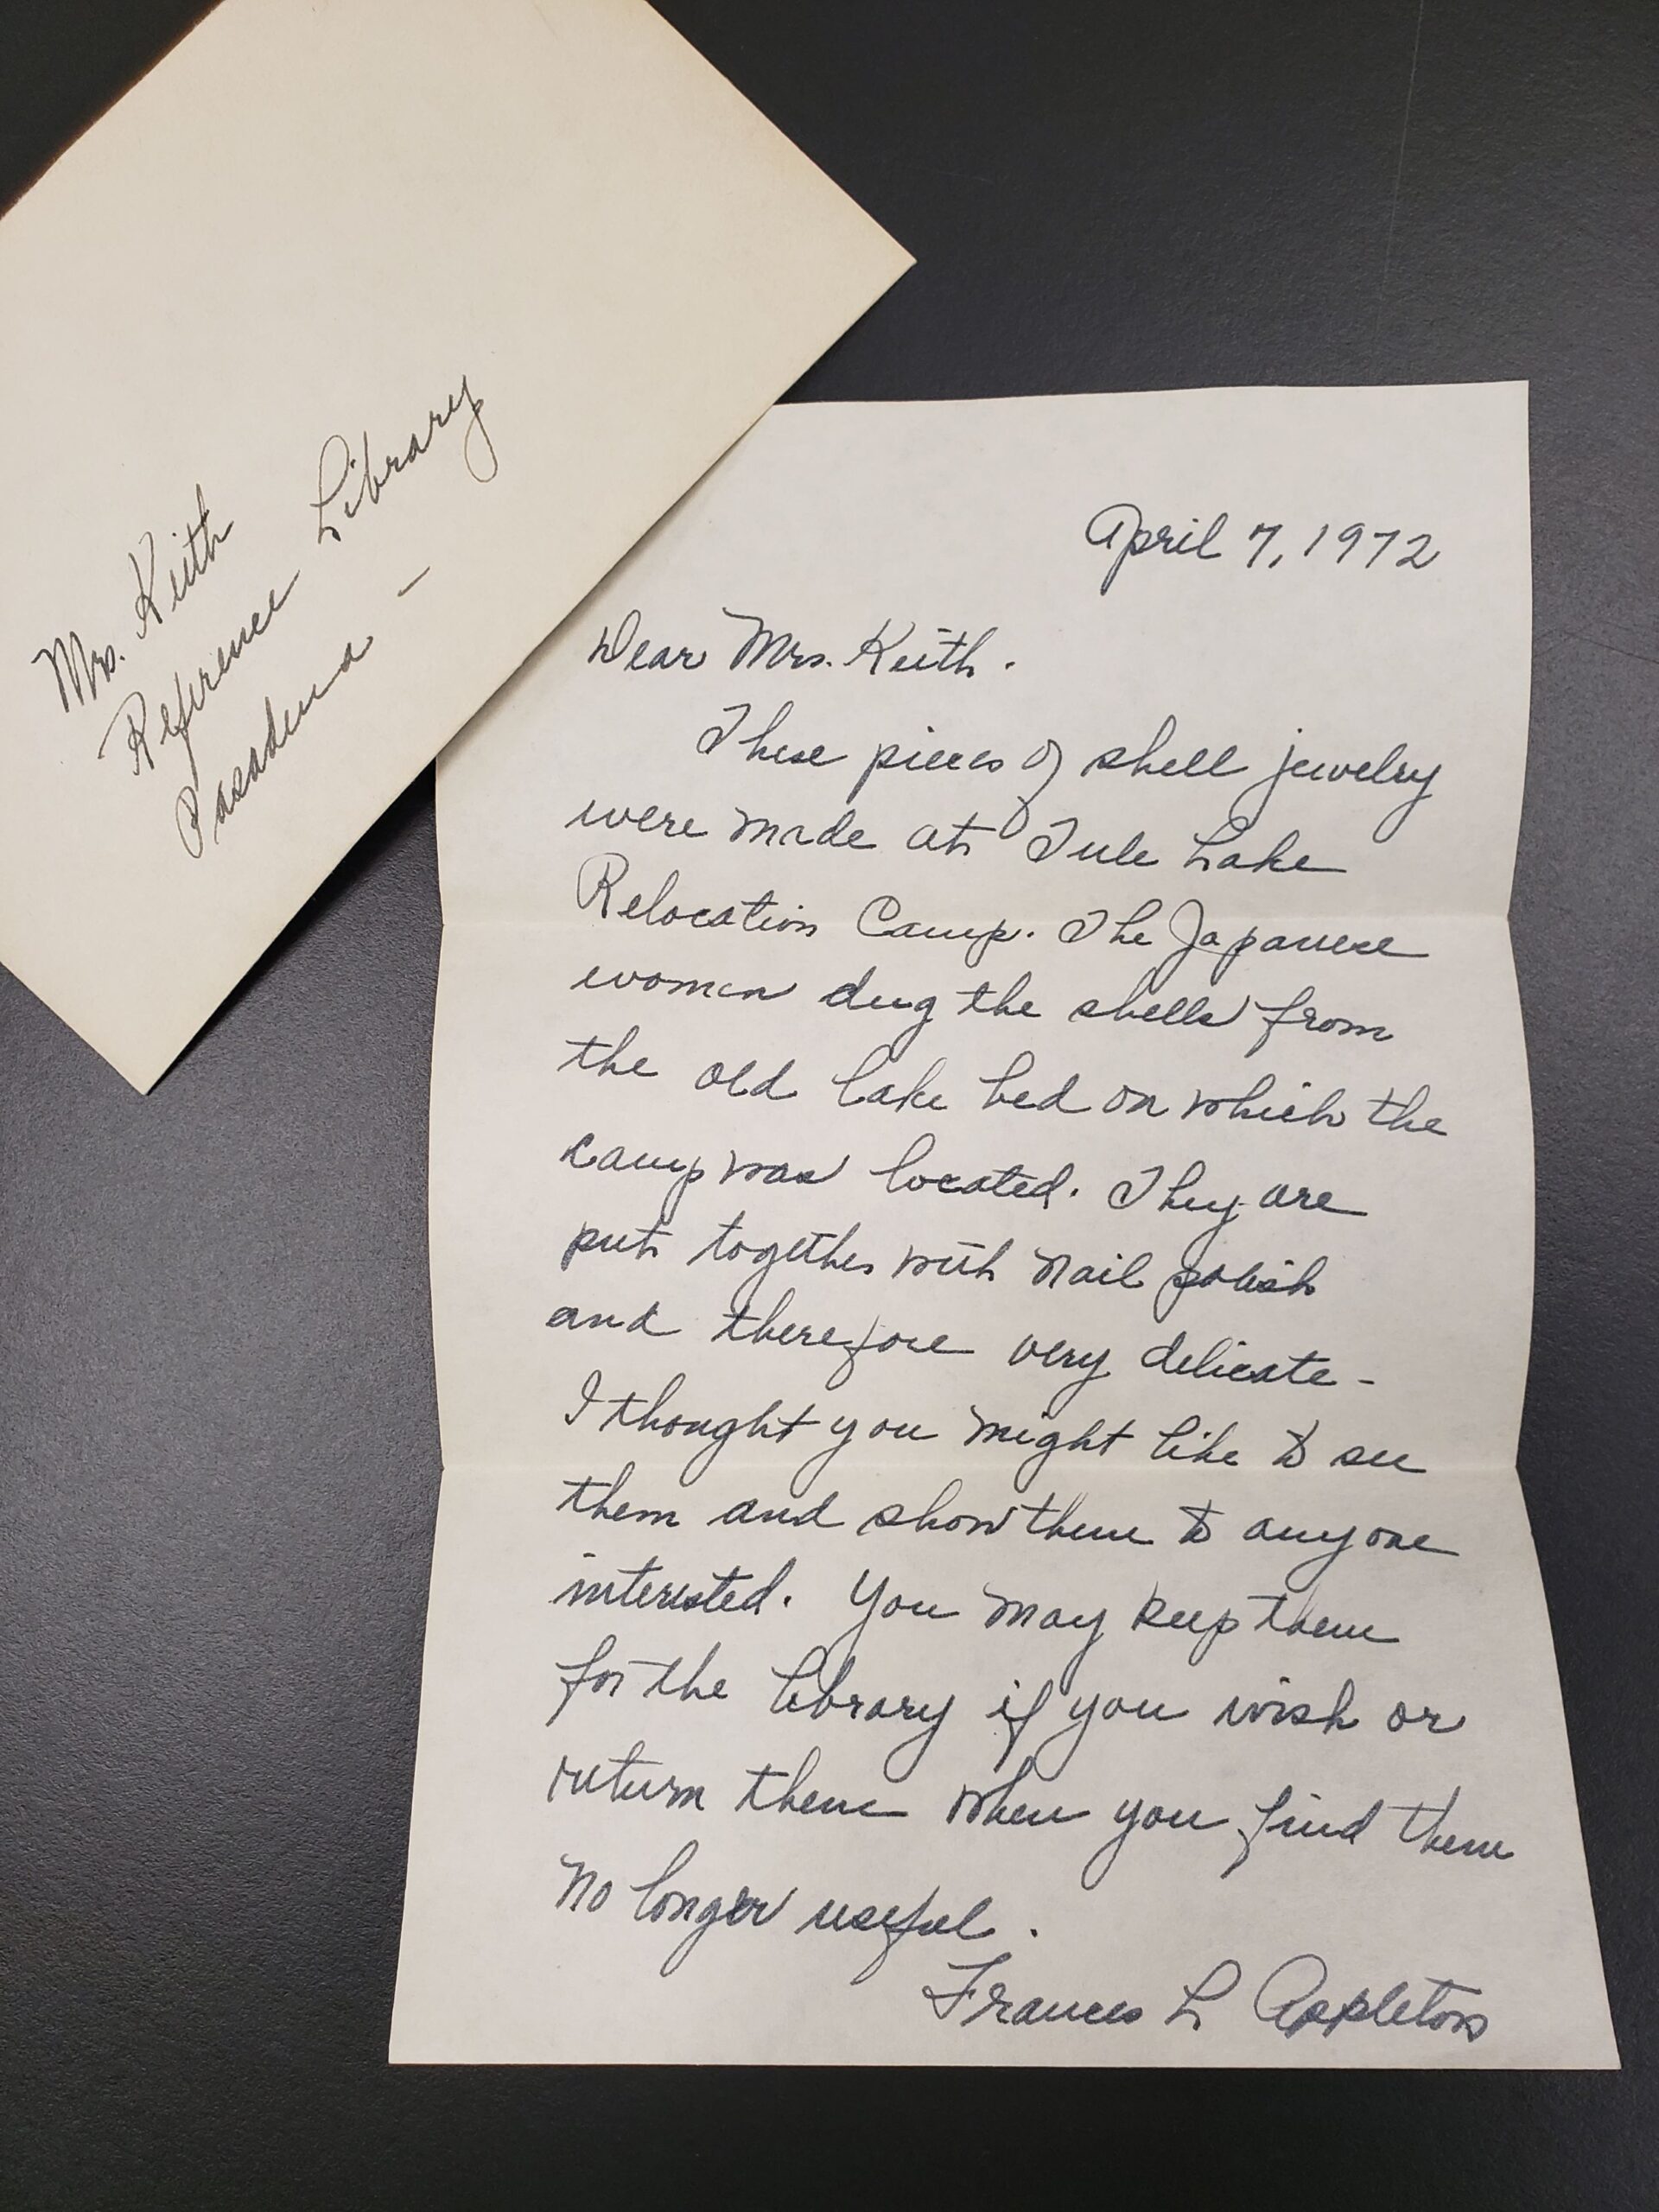 Mrs. Keith
Reference Library
Pasadena -
April 7, 1972
Dear Mrs. Keith.
These pieces of shell jewelry
were made at Tule Lake
Relocation Camp. The Japanese
women dug the shells from
the old lake bed on which the
camp was located. They are
put together with nail polish
and therefore very delicate -
I thought you might like to see
them and show them to anyone
interested. You may keep them
for the library if you wish or
return them when you find them
no longer useful.
Frances L Appleton